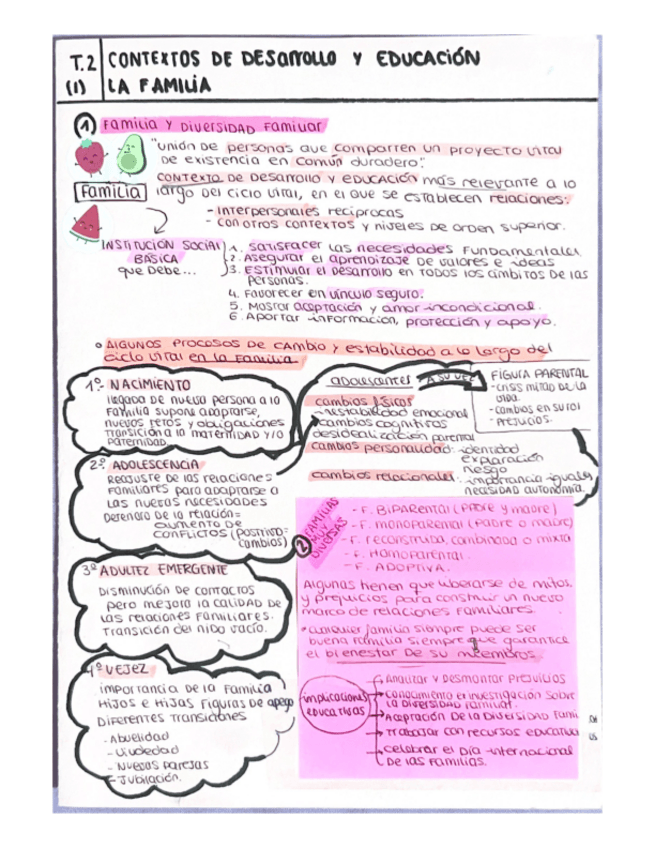 T.2 CONTEXTOS DE DESARROLLO Y EDUCACIÓN
(1) LA FAMILIA
1 FAMILIA Y DIVERSIDAD FAMILIAR
"UNIÓN DE personas que comparten un proyecto vital
DE existencia en común duradero".
CONTEXTO DE DESARROLLO Y EDUCACIÓN más relevante a lo
largo del ciclo vital, en el que se establecen relaciones:
Familia
- Interpersonales reciprocas
- con otros contextos y niveles de orden superior.
INSTITUCIÓN SOCIAL
BÁSICA
que DEBE...
1. SATISFACER las necesidades fundamentales
2. Asegurar el aprendizaje de valores e ideas
3. ESTIMULAR el DESARROLLO en TODOS los ámbitos DE las
personas.
4. Favorecer en vínculo seguro.
5. Mostrar aceptación y amor incondicional.
6. Aportar información, protección y apoyo.
° ALGUNOS PROCESOS DE CAMBIO y estabilidad a lo largo del
ciclo vital en la FAMILIA
1º. NACIMIENTO
llegada de nueva persona a la
familia supone adaptarse,
nuevos retos y obligaciones
TRANSICIÓN a la maternidad y/o
paternidad.
2º ADOLESCENCIA
Reajuste de las relaciones
familiares para adaptarse a
las nuevas necesidades
Deterioro de la relación =
aumento DE
conflictos (positivo =
cambios)
3º ADULTEZ EMERGENTE
DISMINUCIÓN DE contactos
pero mejora la calidad DE
las relaciones familiares.
Transición del nido vacío.
4º VEJEZ
importancia de la Familia
HIJOS e HIJAS Figuras de apego
DIFERENTES TRANSICIONES
- Abuelidad
- Viudedad
- Nuevas parejas
- Jubilación.
adolescentes A SU VEZ
cambios físicos
inestabilidad emocional
cambios cognitivos
desidealización parental
cambios personalidad: identidad
exploración
riesgo
cambios relacionales: importancia iguales
necesidad autonomía.
FIGURA PARENTAL
- crisis mitad de la
vida.
- cambios en su rol
- Prejuicios.
2 FAMILIAS
MUY
DIVERSAS
- F. BIPARENTAL (PADRE y madre)
- F. monoparental (padre o madre)
- F. reconstruida, combinada o mixta
- F. Homoparental.
- F. ADOPTIVA.
Algunas tienen que liberarse de mitos
y prejuicios para construir un nuevo
marco de relaciones familiares.
• cualquier familia siempre puede ser
buena familia siempre que garantice
el bienestar de su miembros.
implicaciones
educativas
Analizar y Desmontar Prejuicios
conocimiento e investigación sobre
la diversidad familiar.
Aceptación de la Diversidad Fami
Trabajar con recursos educativ
celebrar el Día internacional
De las familias.